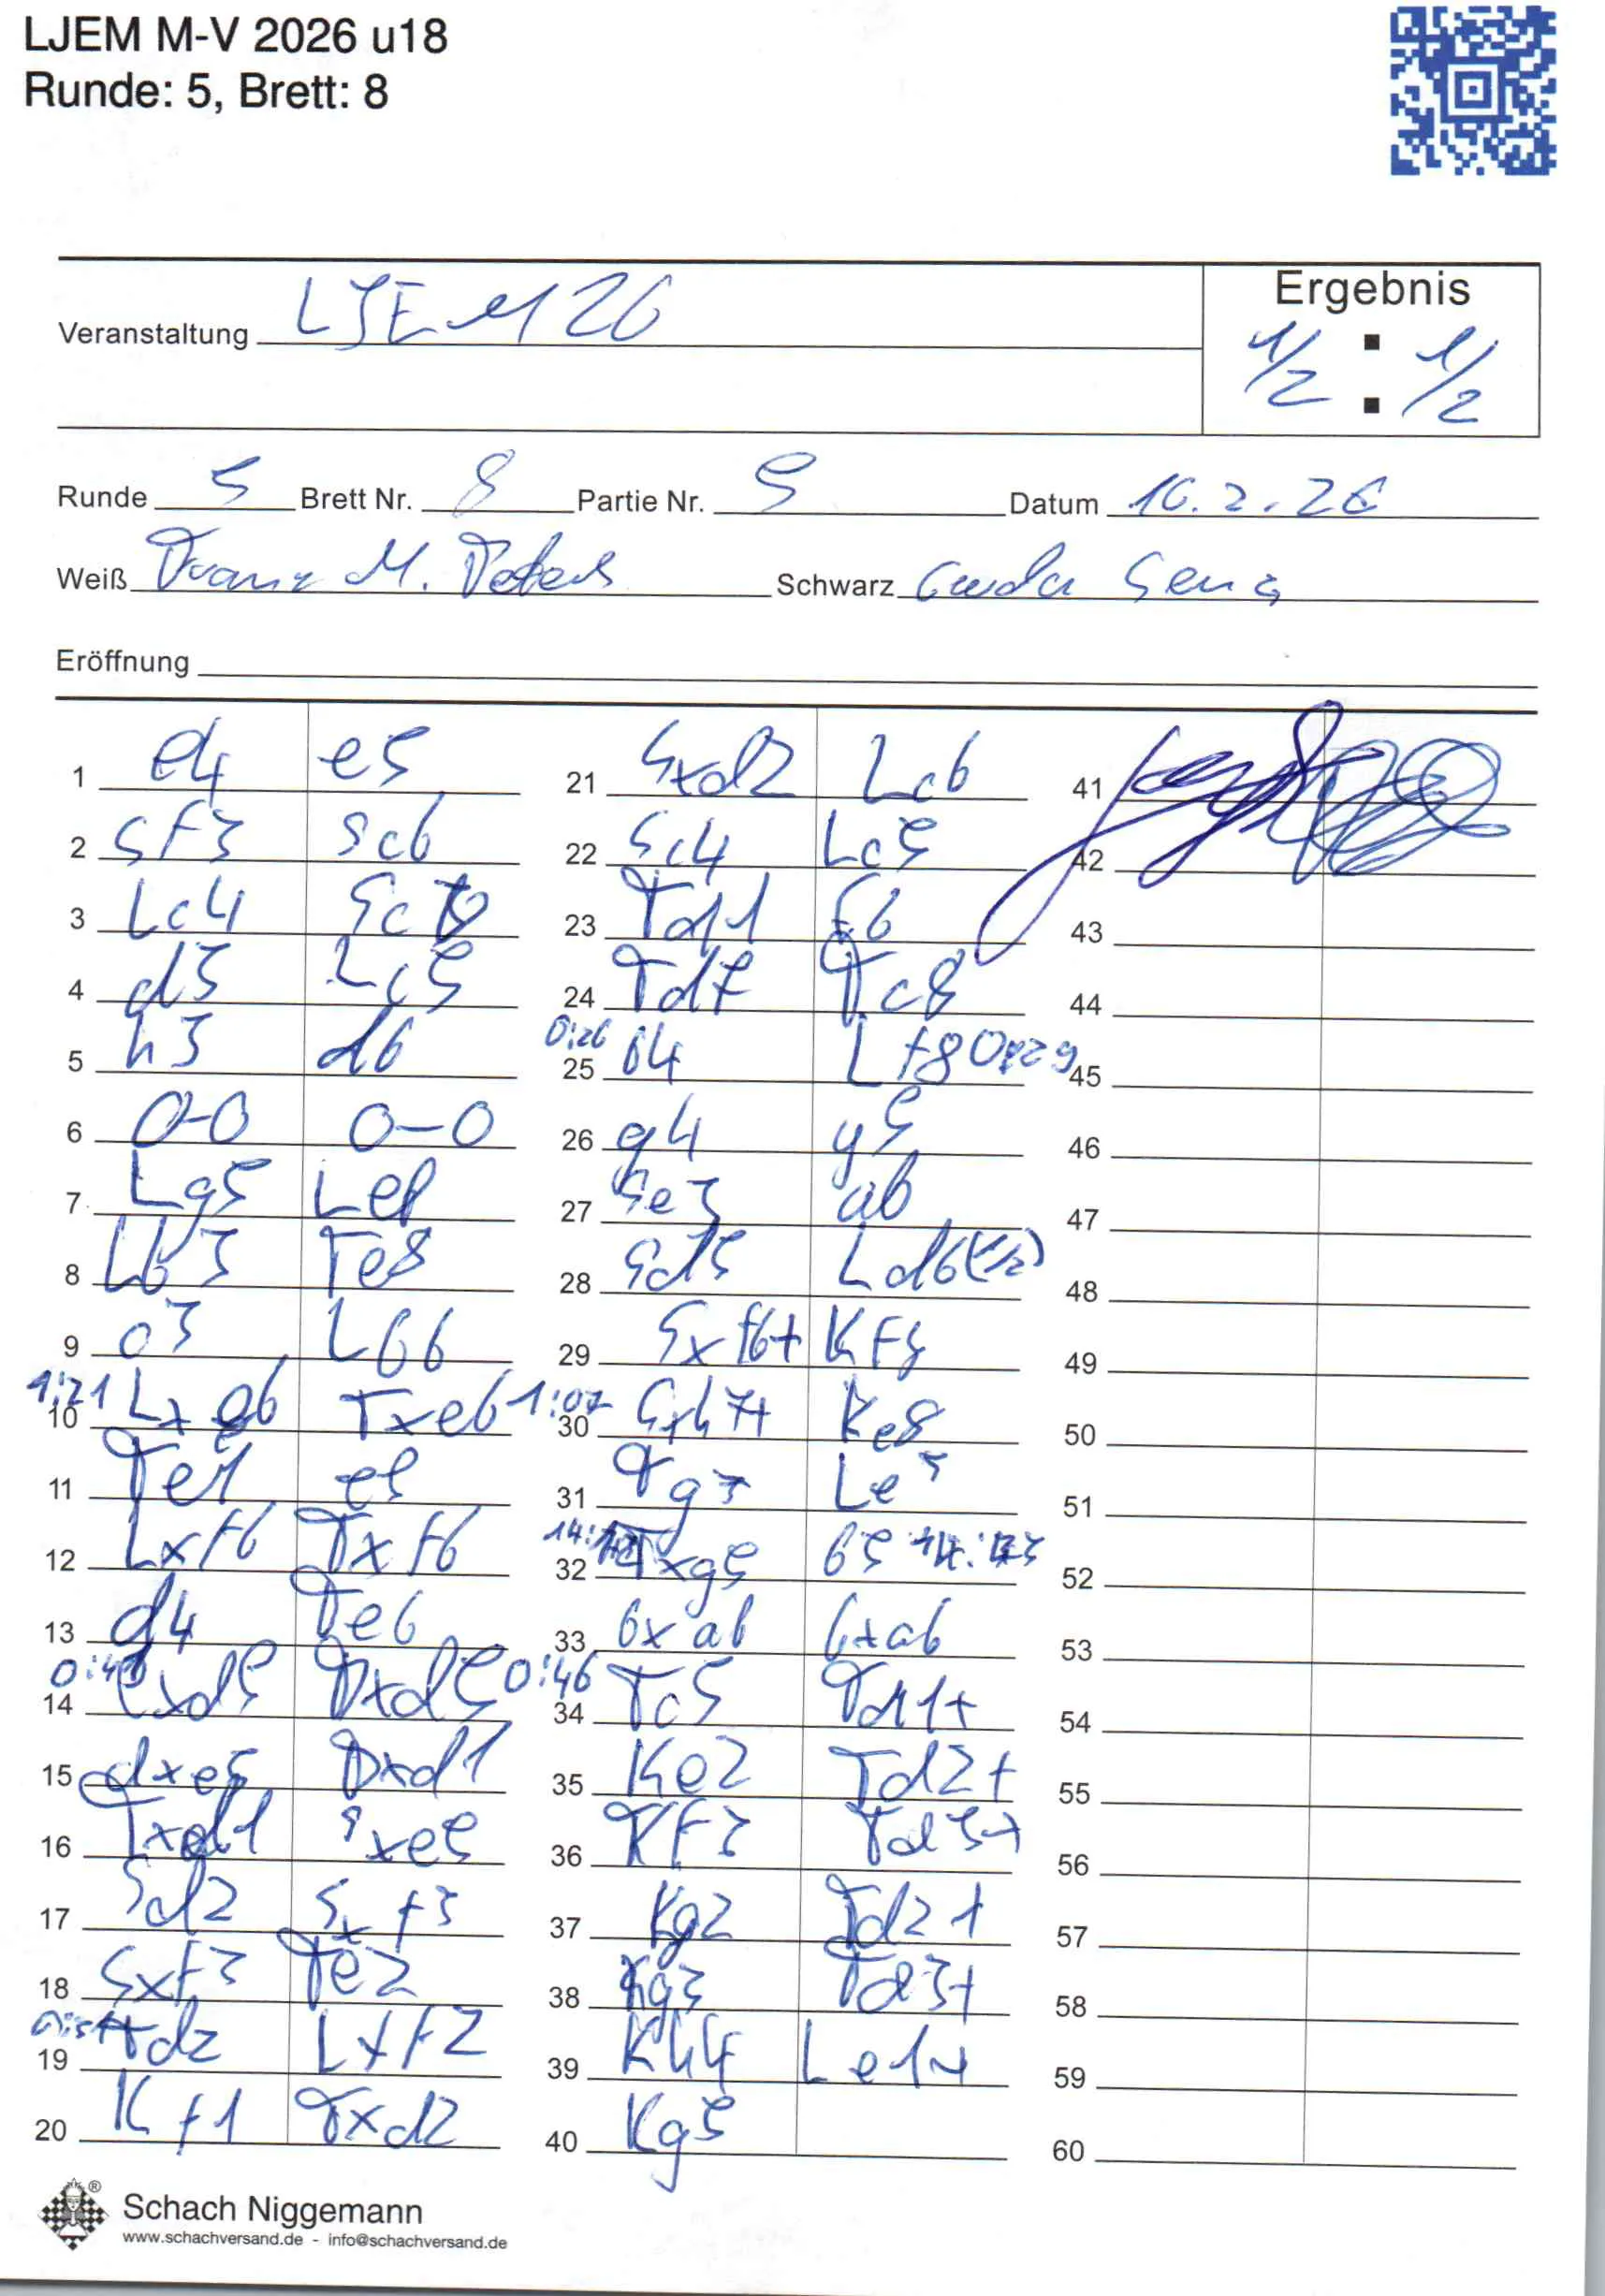 LJEM M-V 2026 u18
Runde: 5, Brett: 8
Ergebnis
Veranstaltung LJEM 26
1/2 : 1/2
Runde 5 Brett Nr. 8 Partie Nr. 5 Datum 10.2.26
Weiß Franz M. Schwarz
Eröffnung
1 e4 e5
2 Sf3 Sc6
3 Lc4
4 d3 Lc5
5 h3 d6
6 0-0 0-0
7 Lg5 Le6
8 Lb3 Te8
9 a3 Lb6
1:21
10 Lxe6 Txe6 1:07
11 Te1
12 Lxf6 Txf6
13 d4 Te6
14 exd5 Dxd5 0:46
15 dxe5 Dxd1
16 Txd1 Sxe5
17 Sd2 Sxf3
18 Sxf3 Te2
19 Td2 Lxf2
20 Kf1 Txd2
21 Sxd2 Lb6
22 Sc4 Lc5
23 Td1 f6
24 Td7 Tc8
0:26
25 b4 Lf8 0:29
26 g4 g5
27 Se3 a6
28 Sd5 Ld6 (1/2)
29 Sxf6+ Kf8
30 Sxh7+ Ke8
31 Tg7 Le5
32 Txg5 b5
33 bxa6 bxa6
34 Tc5 Td1+
35 Ke2 Td2+
36 Kf3 Td3+
37 Kg2 Td2+
38 Kg3 Td3+
39 Kh4 Le1+
40 Kg5
41
42
43
44
45
46
47
48
49
50
51
52
53
54
55
56
57
58
59
60
Schach Niggemann
www.schachversand.de - info@schachversand.de